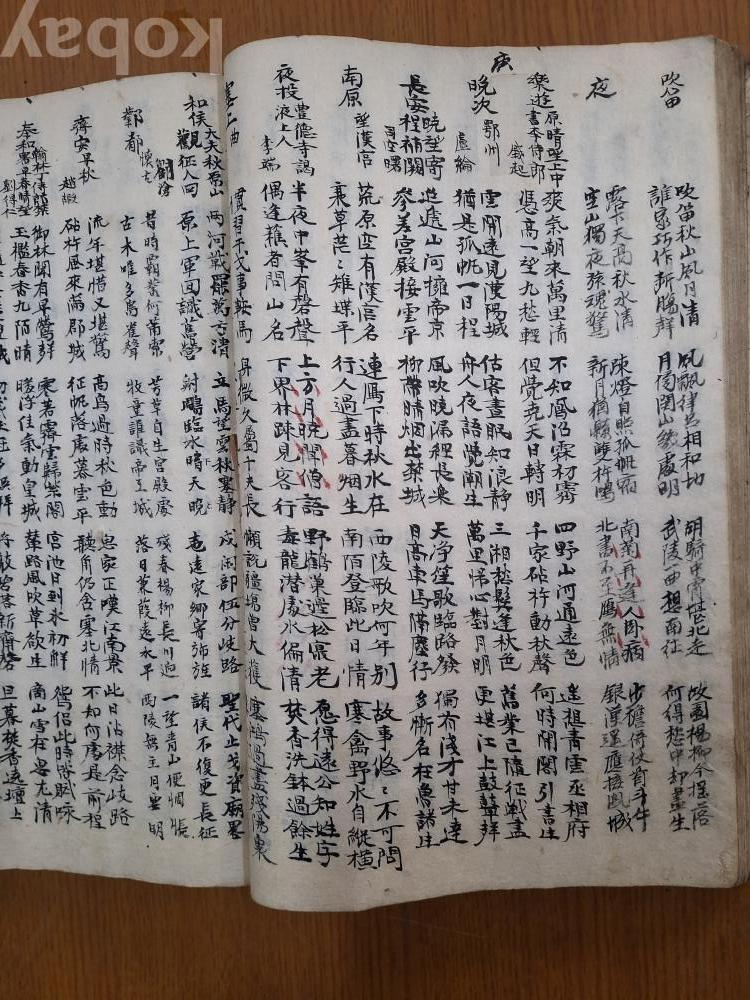 kobay
吹笛
吹笛秋山風月清 風飄律呂相和切 胡騎中宵堪北走 故園楊柳今搖落
誰家巧作斷腸聲 月傍關山幾處明 武陵一曲想南征 何得愁中却盡生
夜
露下天高秋水清 疎燈自照孤帆宿 南菊再逢人卧病 步簷倚仗看斗牛
空山獨夜旅魂驚 新月猶縣雙杵鳴 北書不至鴈無情 銀漢遙應接鳳城
庚
樂遊原晴望上中書李侍郎 盛起
爽氣朝來萬里清 不知鳳沼霖初霽 四野山河通遠色 遙想青雲丞相府
憑高一望九愁輕 但覺堯天日轉明 千家砧杵動秋聲 何時開閤引書生
晩次鄂州 盧綸
雲開遠見漢陽城 估客晝眠知浪静 三湘愁髮逢秋色 舊業已隨征戰盡
猶是孤帆一日程 舟人夜語覺潮生 萬里歸心對月明 更堪江上鼓鼙聲
長安曉望寄程補闕 司空曙
迢遞山河擁帝京 風吹曉漏經長樂 天净笙歌臨路發 獨有淺才甘未達
參差宮殿接雲平 柳帶晴烟出禁城 日高車馬隔塵行 多慚名在魯諸生
南原望漢宮
荒原空有漢宮名 連鴈下時秋水在 西陵歌吹何年別 故事悠々不可問
衰草茫々雉堞平 行人過盡暮烟生 南陌登臨此日情 寒禽野水自縱橫
夜投豊德寺謁液上人 李端
半夜中峯有磬聲 上方月曉聞僧語 野鶴巢邊松最老 愿得遠公知姓字
偶逢樵者問山名 下界林疎見客行 毒龍潛處水偏清 焚香洗鉢過餘生
塞上曲
慣習干戈事鞍馬 身微久屬千夫長 懶說疆場曾大獲 塞鴻過盡殘陽裏
和侯大夫秋原山觀征人回
兩河戰罷萬方清 立馬望雲秋塞静 戍閑部伍分岐路 聖代止戈資廟畧
原上軍回識舊營 射鵰臨水晴天晚 地遠家鄉寄旆旌 諸侯不復更長征
鄴都懷古 劉滄
昔時霸業何蕭索 芳草自生宮殿處 殘春楊柳長川迥 一望青山便惆悵
古木唯多鳥雀聲 牧童誰識帝王城 落日蒹葭遠水平 西陵無主月空明
齊安早秋 趙嘏
流年堪惜又堪驚 高鳥過時秋色動 思家正嘆江南景 此日沾襟念岐路
砧杵風來滿郡城 征帆落處暮雲平 聽角仍含塞北情 不知何處是前程
奉和翰林丁侍郎禁署早春晴望 劉得仁
御林聞有早鶯聲 霽雪歸紫閣 宮池日到氷初解 鴛侶此時偕賦咏
玉檻春香九陌晴 暖浮佳氣動皇城 輦路風吹草欲生 商山雪在思尤清
旦暮焚香遶壇上